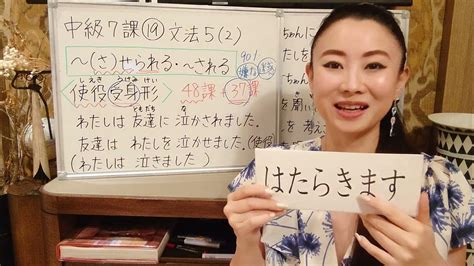 中級7課⑲文法5(2)
～(さ)せられる・～される
90%
嫌な
しえき うけみ けい
使役受身形 48課+37課
ともだち
わたしは友達に泣かされました.
友達は わたしを泣かせました.(使役
(わたしは 泣きました)
ちゃんに
はたらきます